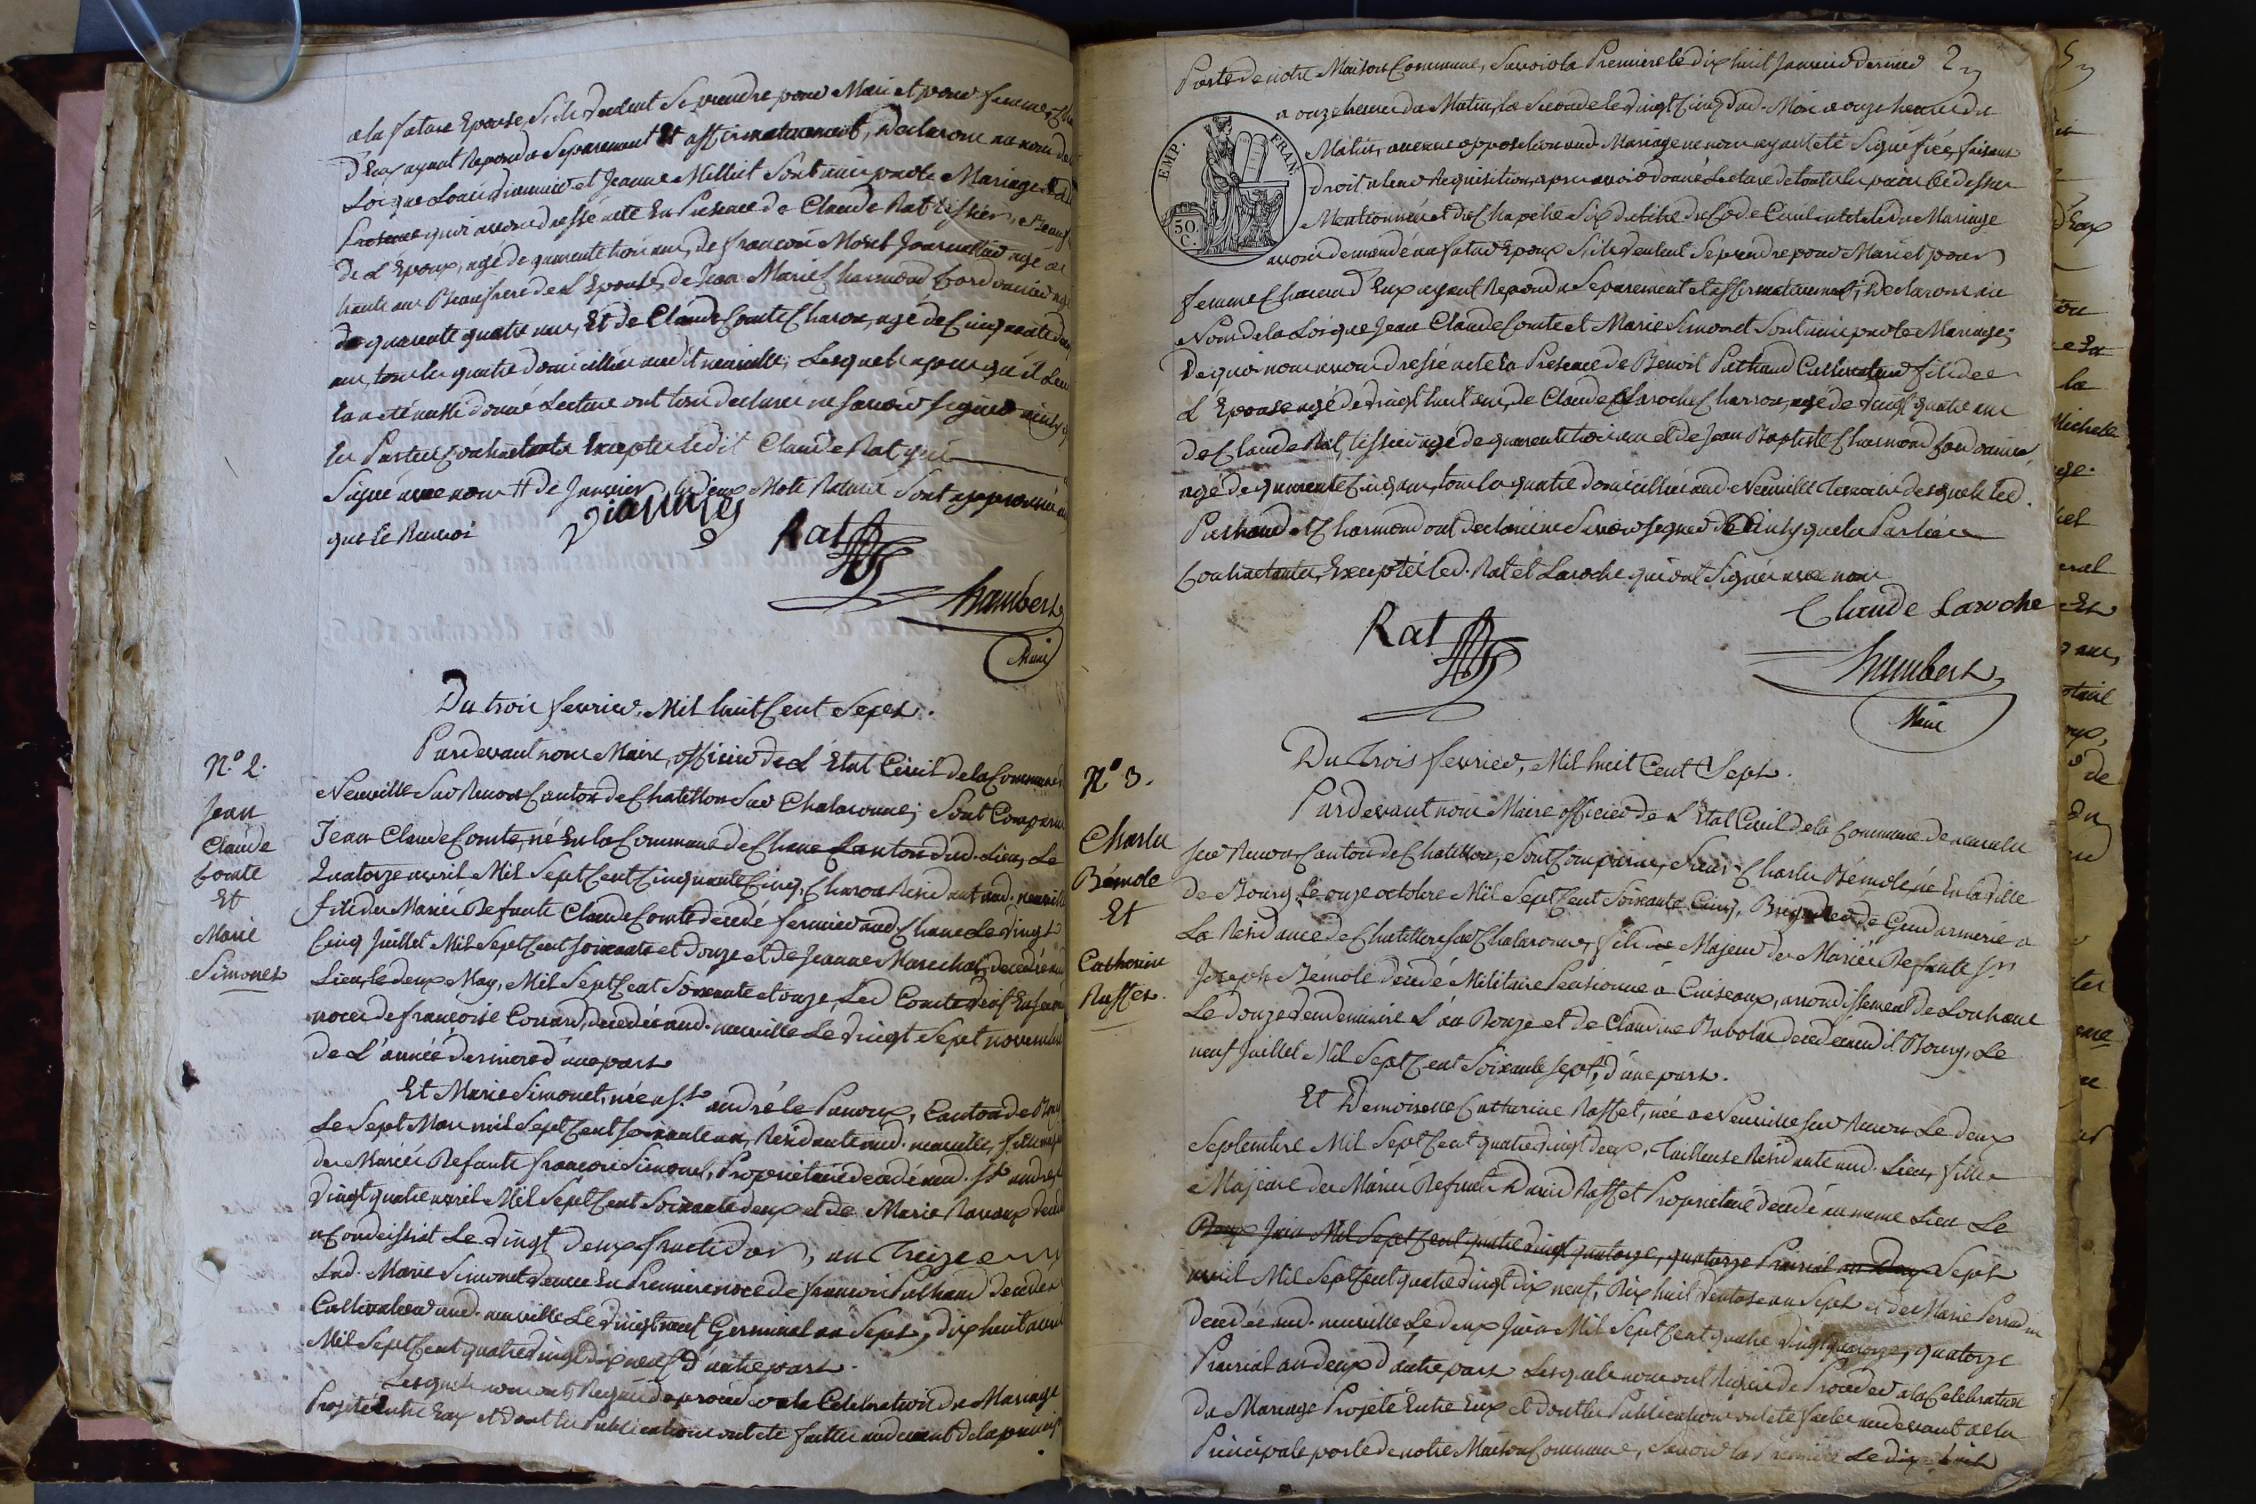 a la future Epouse, S'ils veulent Se prendre pour Mari et pour femme, Cha
d'Eux ayant Repondu Separement Et affirmativement, Declarons au nom de
Loi que Louis Viannier et Jeanne Milliet Sont unis par le Mariage
quoi avons dressé acte En Presence de Claude Rat tissier,
De L'Epoux, agé de quarente trois ans, de françois Morel Journallier agé de
trente ans Beaufrere de L'Epouse, de Jean Marie Charmond Cordonnier agé
de quarente quatre ans, Et de Claude Comte Charon, agé de Cinquante
ans, tous les quatre domiciliés audit neuville; Lesquels apres qu'il Leur
En a eté aussi donné Lecture ont tous declarés ne Savoir Signer ainsy q
les Parties Contractantes Excepté ledit Claude Rat qui
Signé avec nous # de Janvier les deux Mots Raturé Sont approuvé ain
que le Renvoi
Viannier
Rat
humbert
Maire
Du trois fevrier, Mil huit Cent Sept.
N.o 2.
Jean
Claude
Comte
Et
Marie
Simonet
Pardevant nous Maire, officier de L'Etat Civil de la Commune
Neuville Sur Renon Canton de Chatillon Sur Chalaronne; Sont Comparus
Jean Claude Comte, né En la Commune de Chane Canton dud. Lieu, Le
Quatorze avril Mil Sept Cent Cinquante Cinq, Charon Residant aud. neuville
fils des Mariés Defunts Claude Comte decedé fermier aud Chane Le Vingt
Cinq Juillet Mil Sept Cent Soixante et douze et de Jeanne Marechal, decedée aud
Lieu, le deux May, Mil Sept Cent Soixante et onze Led Comte Veuf En
noces de françoise Conard, decedée aud. neuville Le Vingt Sept novembre
de L'année derniere d'une part
Et Marie Simonet, née a S.t andré le Panoux, Canton de
Le Sept Mars mil Sept Cent Soixante un, Residante aud. neuville, fille
des Mariés Defunts françois Simonet, Propriétaire decedé aud. S.t andré
Vingt quatre avril Mil Sept Cent Soixante deux et de Marie Ravoux
a Condeissiat Le Vingt deux fructidor, an Treize
Lad. Marie Simonet Veuve En Premiere noce de françois Pulhaud decedé
Cultivateur aud. neuville Le Vingt neuf Germinal an Sept, dix huit avril
Mil Sept Cent quatre Vingt dix neuf d'autre part.
Lesquels nous ont Requis de proceder a la Celebration du Mariage
Projeté Entre Eux et dont les Publications ont eté faites audevant de la
Porte de notre Maison Commune, Savoir la Premiere le dix huit Janvier dernier 2
a onze heures du Matin, la Seconde le Vingt Cinq dud. Mois a onze heures du
Matin, aucune opposition aud. Mariage ne nous ayant eté Signifiée, faisant
droit a leur Requisition, apres avoir donné Lecture de toutes les pieces Cidessus
Mentionnées et du Chapitre Six du titre du Code Civil intitulé du Mariage
avons demandé au futur Epoux S'ils Veulent Se prendre pour Mari et pour
EMP. FRAN.
50.
C.
femme Chacun d'Eux ayant Repondu Separement et affirmativement; Declarons au
Nom de la Loi que Jean Claude Comte et Marie Simonet Sont unis par le Mariage;
De quoi nous avons dressé acte En Presence de Benoit Pulhaud Cultivateur fils de
L'Epouse agé de Vingt huit ans, de Claude Laroche Charron, agé de Vingt quatre ans
de Claude Rat, tissier agé de quarente trois ans et de Jean Baptiste Charmond Cordonnier
agé de quarente Cinq ans, tous les quatre domiciliés aud Neuville Temoins desquels led.
Pulhaud et Charmond ont declarés ne Savoir Signer De Ainsy que les Parties
Contractantes, Excepté led. Rat et Laroche qui ont Signés avec nous
Claude Laroche
Rat
humbert
Maire
Du Trois fevrier, Mil huit Cent Sept.
N.o 3.
Charles
Bémole
Et
Catherine
Raffet.
Pardevant nous Maire officier de L'Etat Civil de la Commune de neuville
Sur Renon Canton de Chatillon, Sont Comparus, Sieur Charles Bémole né En la Ville
de Bourg Le onze octobre Mil Sept Cent Soixante Cinq, Brigadier de Gendarmerie a
La Residance de Chatillon Sur Chalaronne, fils Majeur des Mariés Defunts Sr
Joseph Bémole decedé Militaire Pensionné a Cuiseaux, arrondissement de Louhans
Le douze Vendemiaire L'an Onze et de Claudine decedée audit Bourg, Le
neuf Juillet Mil Sept Cent Soixante Sept, d'une part.
Et Demoiselle Catherine Raffet, née a Neuville Sur Renon Le deux
Septembre Mil Sept Cent quatre Vingt deux, Tailleuse Residante aud. Lieu, fille
Majeure des Mariés Defunts David Raffet Propriétaire decedé au meme Lieu Le
Deux Juin Mil Sept Cent quatre Vingt quatorze, quatorze Prairial an Deux Sept
avril Mil Sept Cent quatre Vingt dix neuf, Dix huit Ventose an Sept et de Marie
decedée aud. neuville Le deux Juin Mil Sept Cent quatre Vingt quatorze, quatorze
Prairial an deux d'autre part Lesquels nous ont Requis de Proceder a la Celebration
du Mariage Projeté Entre Eux et dont les Publications ont eté faites audevant de la
Principale porte de notre Maison Commune, Savoir la Premiere Le dix huit